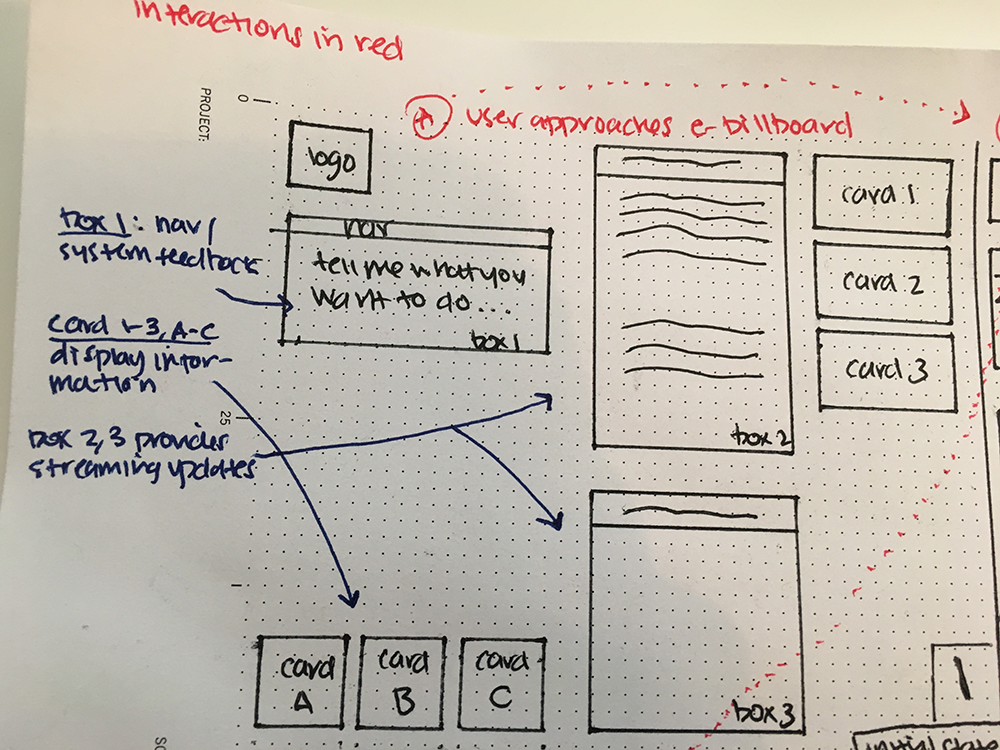 interactions in red
PROJECT:
0
A user approaches e-billboard
logo
box 1: nav/
system feedback
nav
tell me what you
want to do...
box 1
card 1-3, A-C
display infor-
mation
25
box 2, 3 provides
streaming updates
box 2
card 1
card 2
card 3
box 3
card
A
card
B
card
C
1
initial